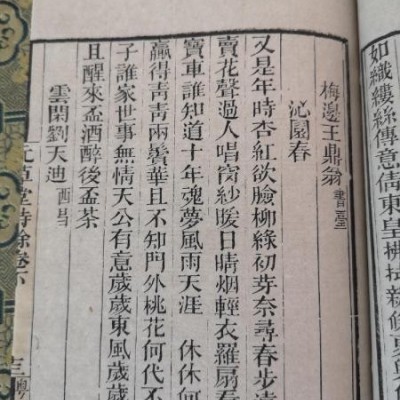 如織縷絲傳意儔東皇拂拭新修
梅邊王鼎翁
沁園春
又是年時杏紅欲臉柳綠初芽奈尋春步遠
賣花聲過人唱窗紗暖日晴烟輕衣羅扇看
寶車誰知道十年魂夢風雨天涯　休休何
贏得青青兩鬢華且不知門外桃花何代不
子誰家世事無情天公有意歲歲東風歲歲
且醒來盃酒醉後盃茶
雲閑劉天迪 西昌
元草堂詩餘卷下 三 粵